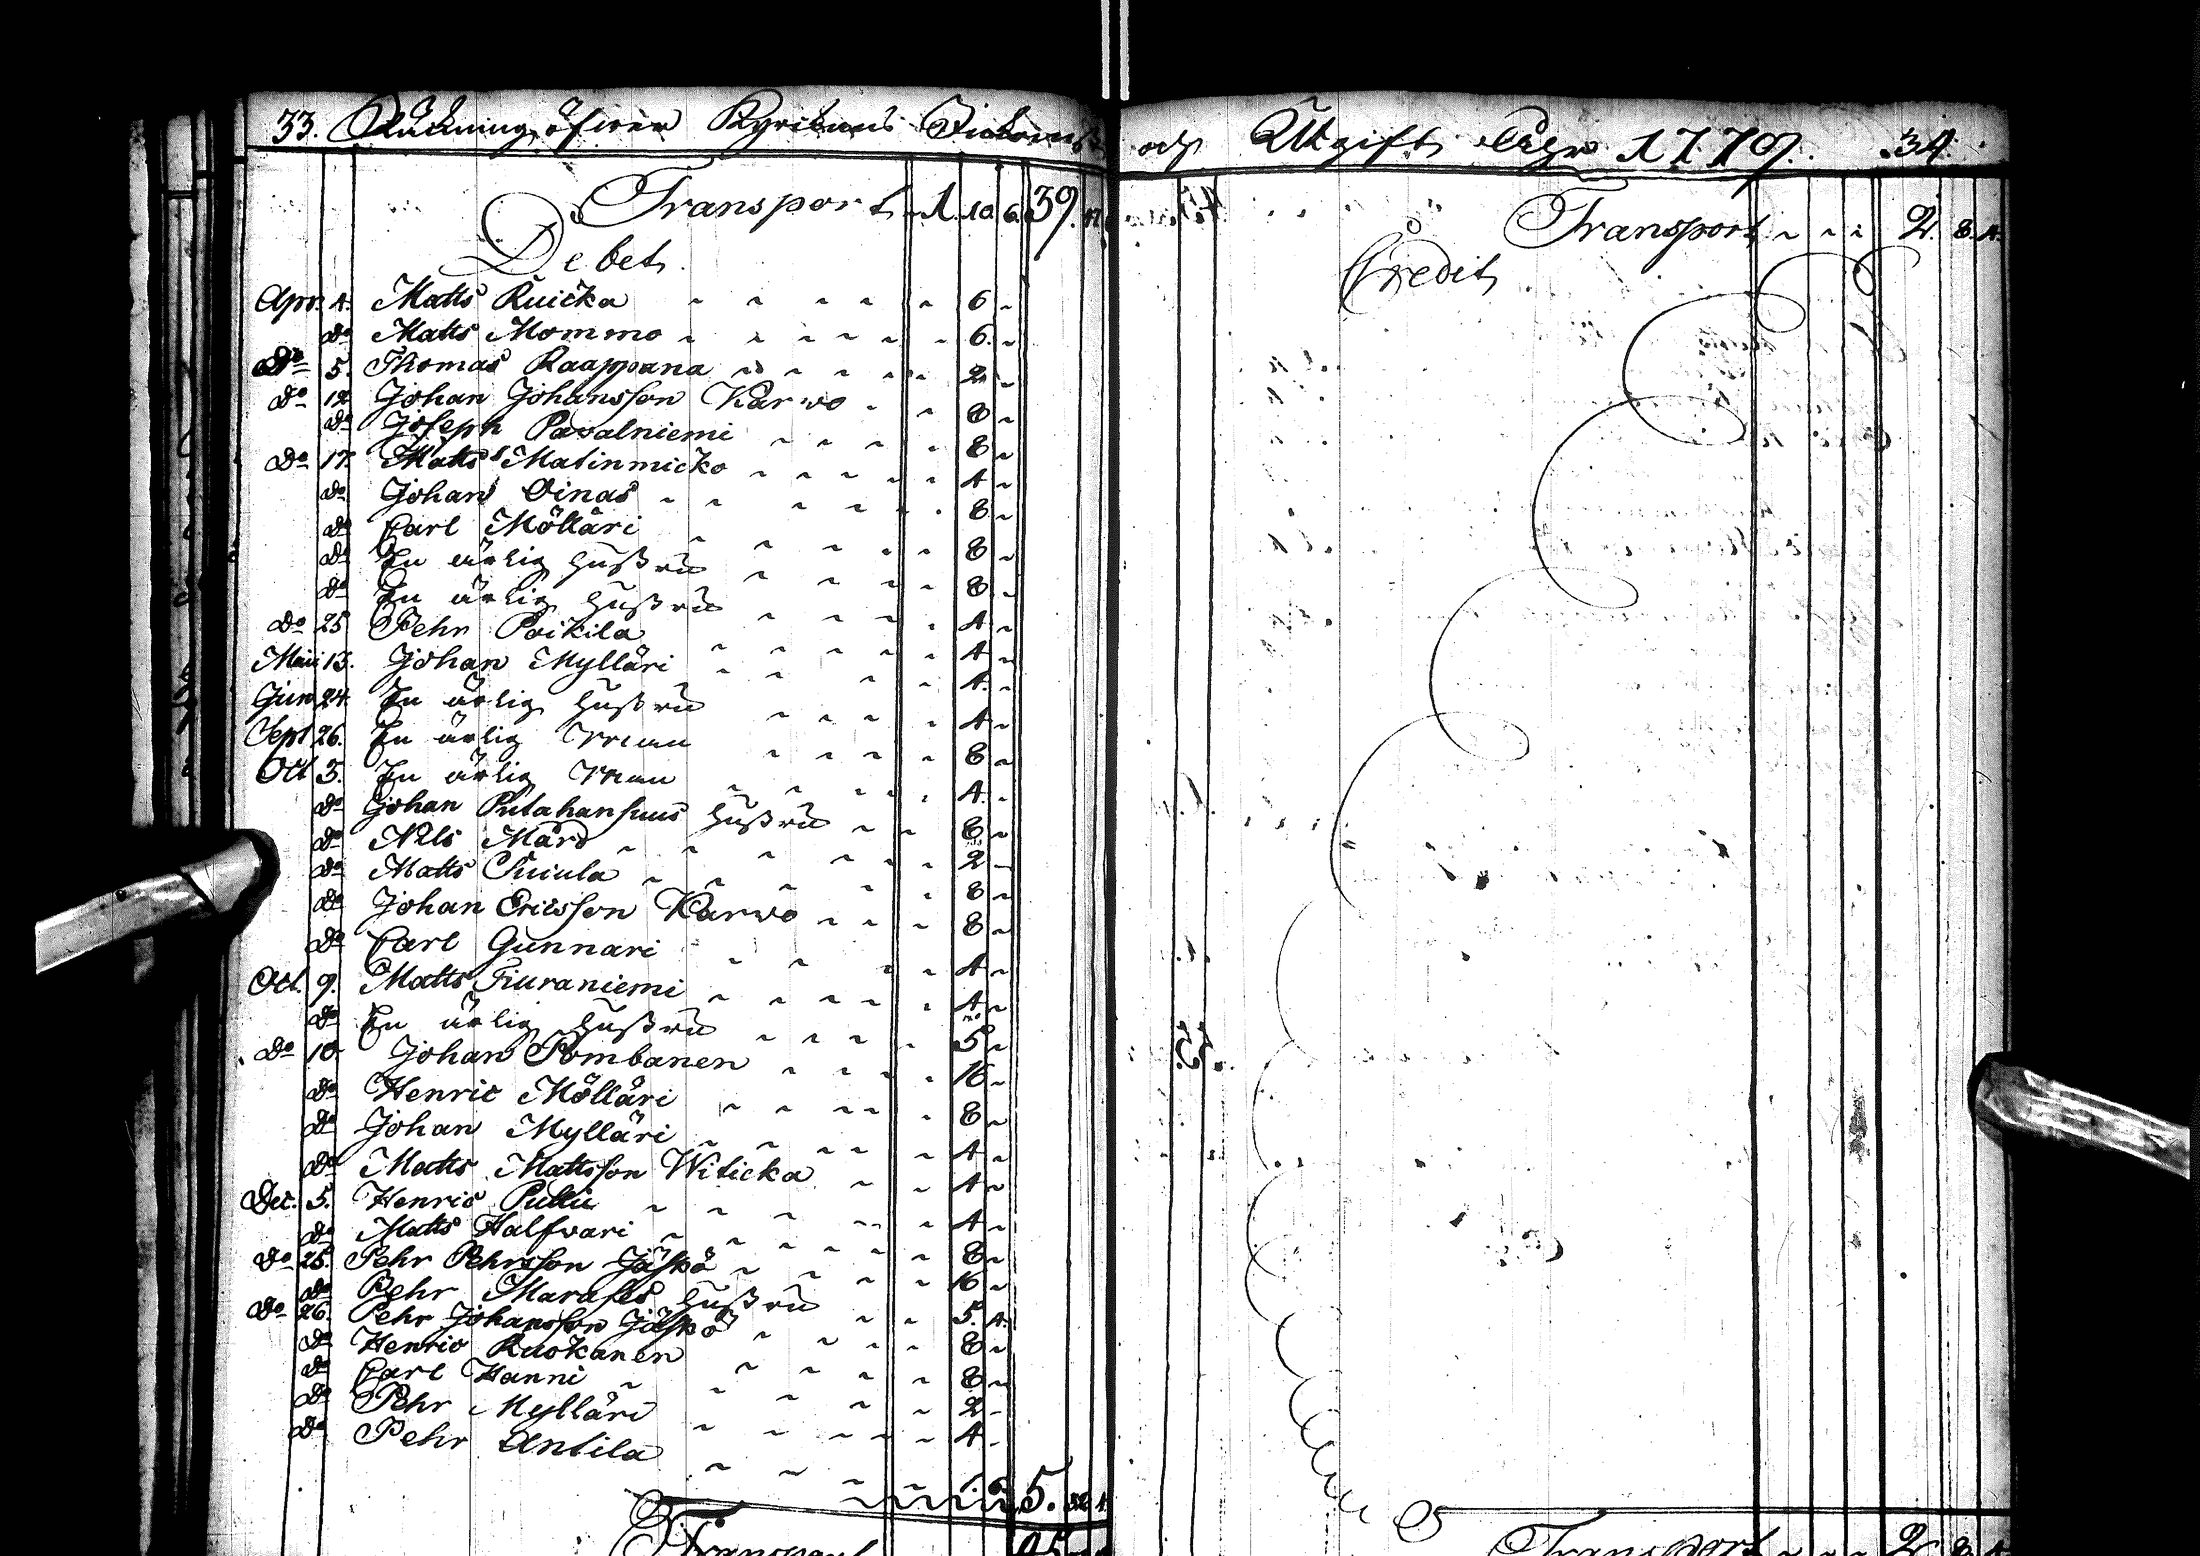 33. Räckning öfwer Kyrckans Inkomst
Transport 1. 10. 6. 39. 17
Debet
Apr. 4. Matts Kuicka 6 ~
do Matts Mommo 6. ~
do 5. Thomas Kaappana 2 ~
do 12 Johan Johansson Karwo 8 ~
do Joseph Pavalniemi 8 ~
do 17. Matts Matinmicko 4 ~
do Johan Oinas 8 ~
do Carl Mölläri 8 ~
do En ärlig Hustru 8 ~
do En ärlig Hustru 4 ~
do 25 Pehr Poikila 4 ~
Maii 13. Johan Mylläri 4. ~
Jun 24. En ärlig Hustru 4 ~
Sept 26. En ärlig Man 8 ~
Oct 3. En ärlig Man 4. ~
do Johan Putahansuus Hustru 8 ~
do Nils Mård 2 ~
do Matts Suiula 8 ~
do Johan Ericsson Karwo 8 ~
do Carl Gunnari 4 ~
Oct. 9. Matts Fiuraniemi 4 ~
do En ärlig Hustru 5 ~
do 10. Johan Pombanen 16 ~
do Henric Mölläri 8 ~
do Johan Mylläri 4 ~
do Matts Mattsson Witicka 4 ~
Dec. 5. Henric Pullu 4 ~
do Matts Halfwari 8 ~
do 25. Pehr Pehrsson Jäskö 16 ~
do Pehr Hustru 5. 4.
do 26. Pehr Johansson Jäskö 8 ~
do Henric Ruokanen 8 ~
do Carl Hanni 2 ~
do Pehr Mylläri 4 ~
do Pehr Antila
5. 32
Transport
och Utgift Pågr 1779. 34.
Transport 2. 8. 4.
Credit
Transport 2 8